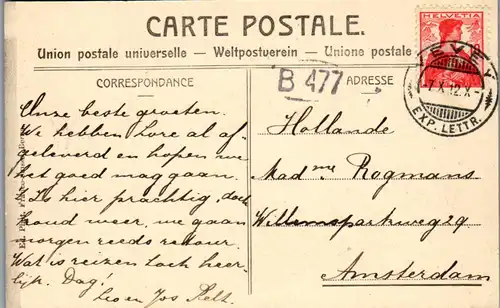 CARTE POSTALE.
Union postale universelle — Weltpostverein — Unione postale
CORRESPONDANCE
ADRESSE
B 477
HELVETIA
VEVEY
-7.X.12.X-
EXP. LETTR.
Onze beste groeten.
We hebben Lore al af-
geleverd en hopen we
het goed mag gaan.
't Is hier prachtig, doch
koud weer, we gaan
morgen reeds retour.
Wat is reizen toch heer-
lijk. Dag!
Leo en Jos Pelt.
Hollande
Madme Rogmans
Willemsparkweg 29
Amsterdam